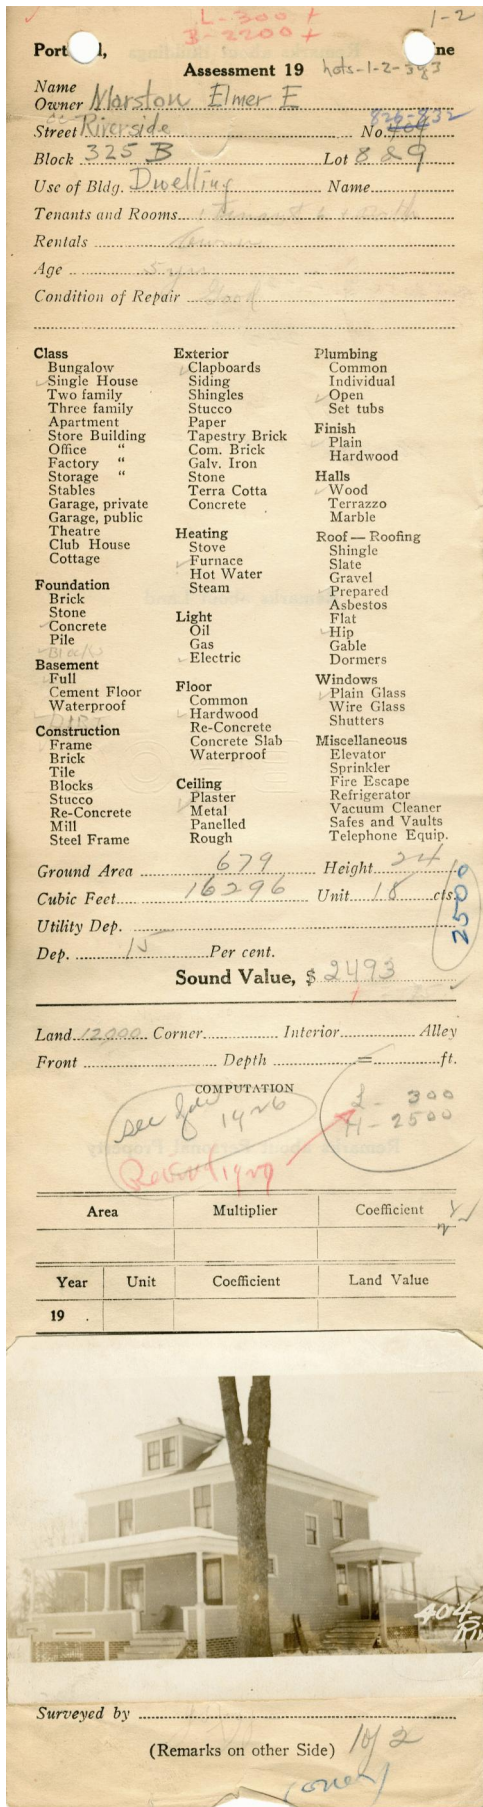 L-300 +
B-2200 +
1-2
Port l, ne
Assessment 19
Lots-1-2-3&3
Name
Owner Marston Elmer E
Street Riverside No. 826-832
Block 325 B Lot 8 & 9
Use of Bldg. Dwelling Name
Tenants and Rooms 1 Tenant 6 1 Bath
Rentals (owner)
Age 5 yrs
Condition of Repair Good
Class
Bungalow
Single House
Two family
Three family
Apartment
Store Building
Office "
Factory "
Storage "
Stables
Garage, private
Garage, public
Theatre
Club House
Cottage
Foundation
Brick
Stone
Concrete
Pile
Blocks
Basement
Full
Cement Floor
Waterproof
Dirt
Construction
Frame
Brick
Tile
Blocks
Stucco
Re-Concrete
Mill
Steel Frame
Exterior
Clapboards
Siding
Shingles
Stucco
Paper
Tapestry Brick
Com. Brick
Galv. Iron
Stone
Terra Cotta
Concrete
Heating
Stove
Furnace
Hot Water
Steam
Light
Oil
Gas
Electric
Floor
Common
Hardwood
Re-Concrete
Concrete Slab
Waterproof
Ceiling
Plaster
Metal
Panelled
Rough
Plumbing
Common
Individual
Open
Set tubs
Finish
Plain
Hardwood
Halls
Wood
Terrazzo
Marble
Roof — Roofing
Shingle
Slate
Gravel
Prepared
Asbestos
Flat
Hip
Gable
Dormers
Windows
Plain Glass
Wire Glass
Shutters
Miscellaneous
Elevator
Sprinkler
Fire Escape
Refrigerator
Vacuum Cleaner
Safes and Vaults
Telephone Equip.
Ground Area 679 Height 24
Cubic Feet 16296 Unit 18 cts.
2500
Utility Dep.
Dep. 15 Per cent.
Sound Value, $ 2493
Land 12000 Corner Interior Alley
Front Depth = ft.
COMPUTATION
see 1926
L - 300
H - 2500
Revised 1929
Area Multiplier Coefficient
Year Unit Coefficient Land Value
19
404
Riv
Surveyed by
(Remarks on other Side) 1 of 2
(over)